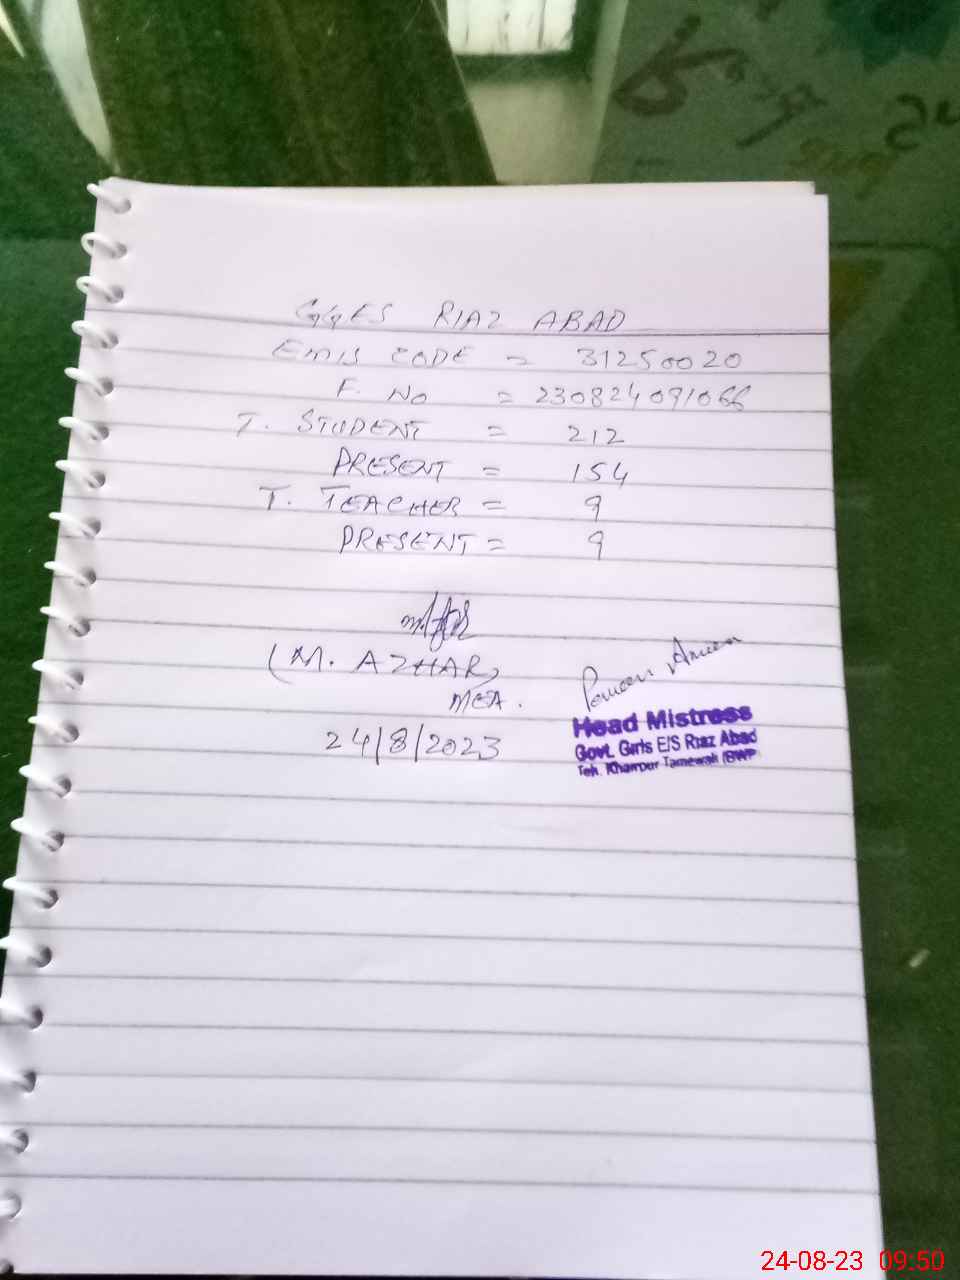 GGES RIAZ ABAD
EMIS CODE = 31250020
F. NO = 230824091066
T. STUDENT = 212
PRESENT = 154
T. TEACHER = 9
PRESENT = 9
(M. AZHAR)
MEA.
24/8/2023
Head Mistress
Govt. Girls E/S Riaz Abad
Teh. Khairpur Tamewali (BWP
24-08-23 09:50